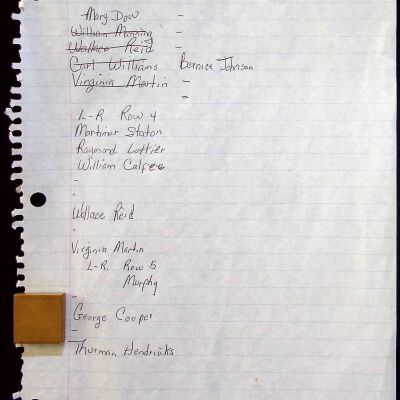 Mary Dow -
William Manning -
Wallace Reid -
Carl Williams Bernice Johnson
Virginia Martin -
-
L-R Row 4
Mortimer Staton
Raymond Lottier
William Calfee
-
-
Wallace Reid
-
Virginia Martin
L-R. Row 5
Murphy
-
George Cooper
-
Thurman Hendricks